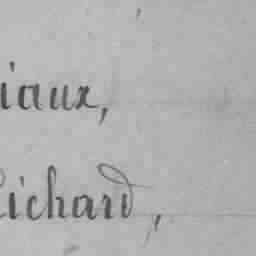 iaux,
Richard,